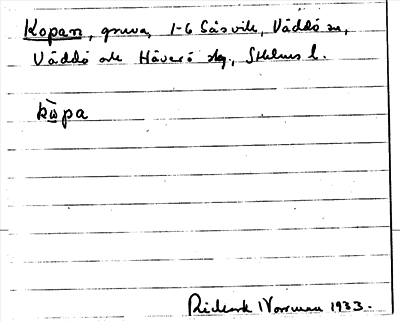 Kopan, gruva, 1-6 Såsvik, Väddö sn,
Väddö och Häverö skg., Sthlms l.
kɷ̀pa
Rickard Norrman 1933.